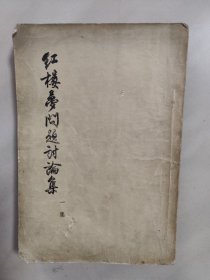 红楼梦问题讨论集
一集